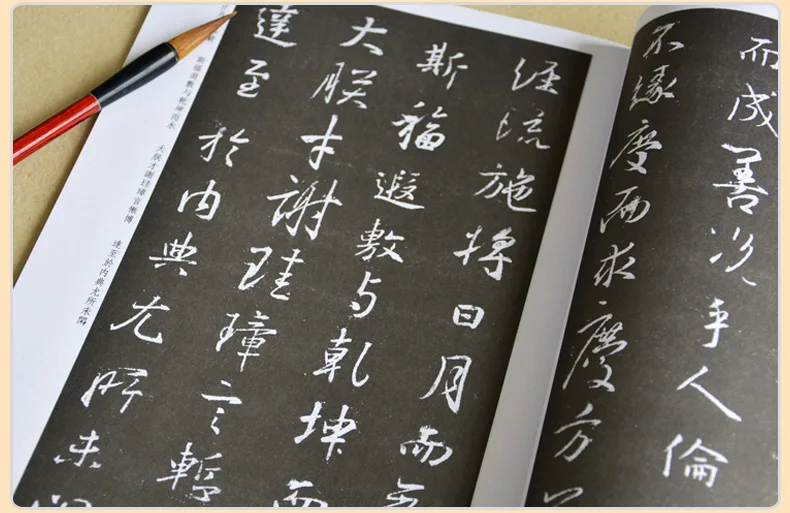 而成善况乎人倫
不緣慶而求慶方
經流施將日月而
斯福遐敷与乾坤而
大朕才謝珪璋言慙
達至於内典尤所未
福遐敷與乾坤而永
大朕才謝珪璋言慚博
達至於內典尤所未閑